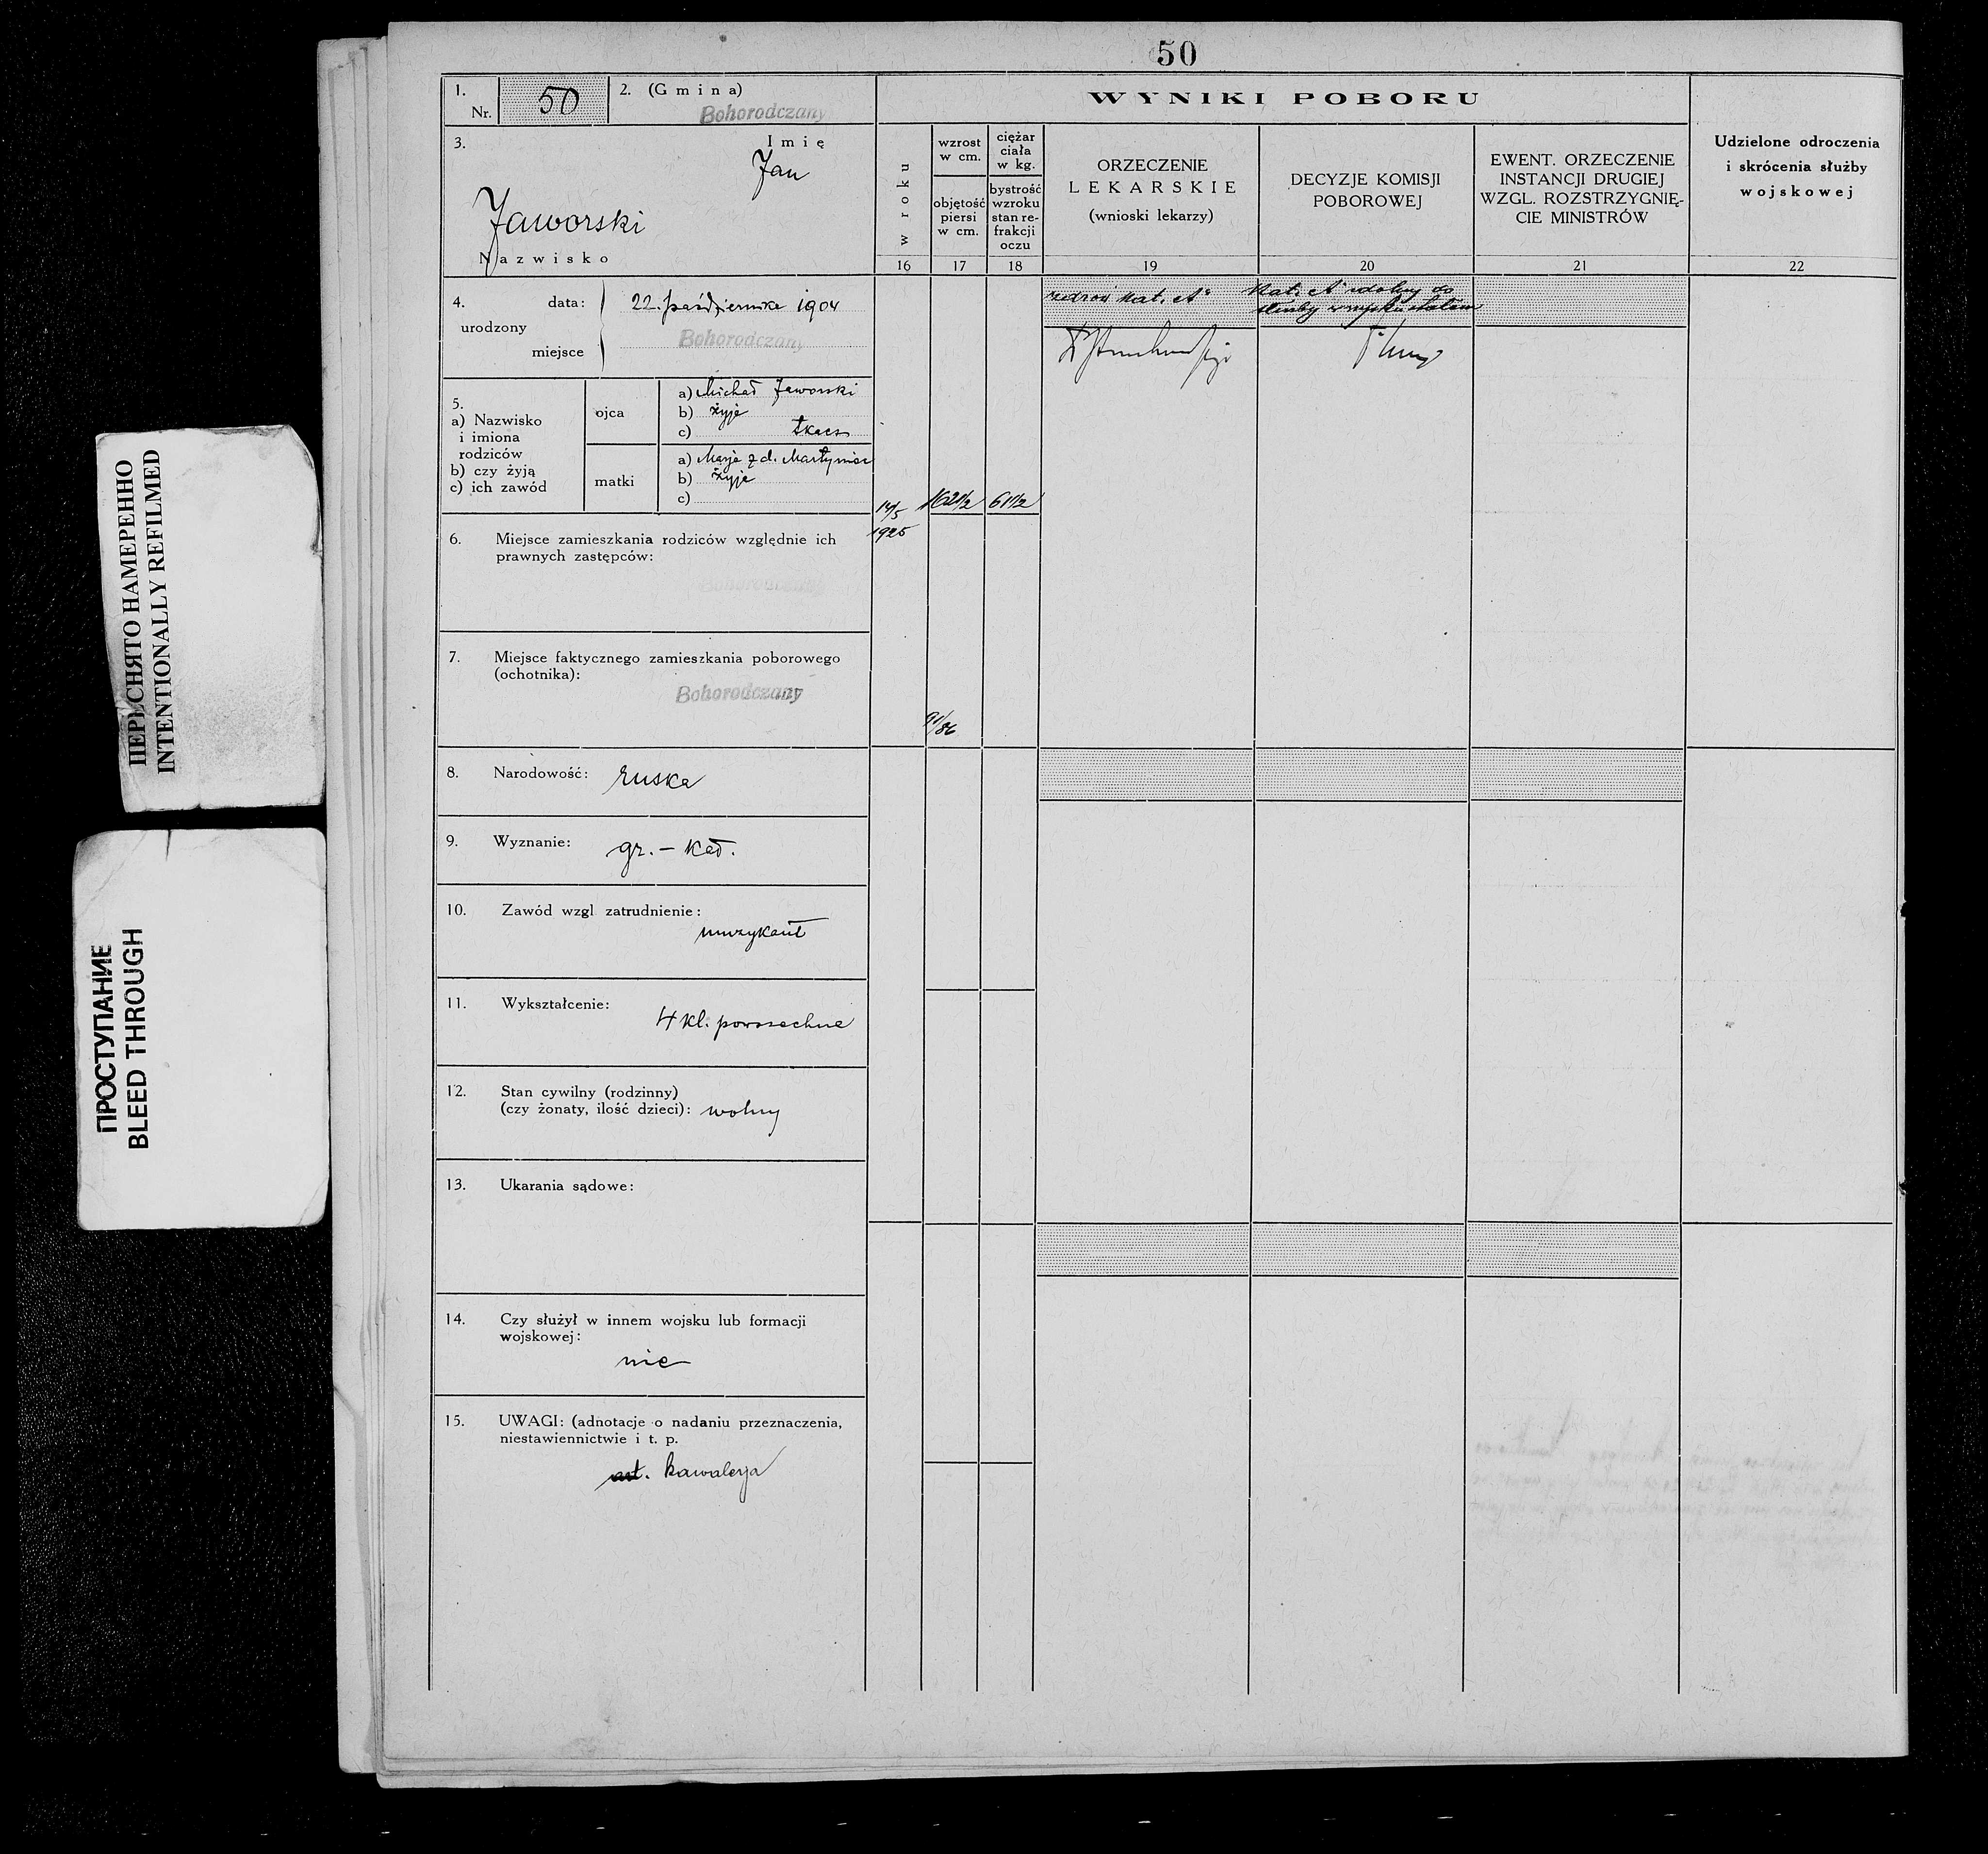 50
1.
Nr. 50
2. (Gmina)
Bohorodczany
3. Imię
Jan
Jaworski
Nazwisko
4. urodzony
data: 22. października 1904
miejsce Bohorodczany
5.
a) Nazwisko
i imiona
rodziców
b) czy żyją
c) ich zawód
ojca
a) Michał Jaworski
b) żyje
c) tkacz
matki
a) Marja z d.
b) żyje
c)
6. Miejsce zamieszkania rodziców względnie ich
prawnych zastępców:
Bohorodczany
7. Miejsce faktycznego zamieszkania poborowego
(ochotnika):
Bohorodczany
8. Narodowość: ruska
9. Wyznanie: gr.-kat.
10. Zawód wzgl zatrudnienie:
muzykant
11. Wykształcenie:
4 kl. powszechne
12. Stan cywilny (rodzinny)
(czy żonaty, ilość dzieci): wolny
13. Ukarania sądowe:
14. Czy służył w innem wojsku lub formacji
wojskowej:
nie
15. UWAGI: (adnotacje o nadaniu przeznaczenia,
niestawiennictwie i t. p.
art. kawalerja
WYNIKI POBORU
w roku
16
14/5
1925
wzrost
w cm.
objętość
piersi
w cm.
17
162 1/2
91/86
ciężar
ciała
w kg.
bystrość
wzroku
stan re-
frakcji
oczu
18
61 1/2
ORZECZENIE
LEKARSKIE
(wnioski lekarzy)
19
zdrów kat. A"
DECYZJE KOMISJI
POBOROWEJ
20
Kat. A" zdolny do
służby
EWENT. ORZECZENIE
INSTANCJI DRUGIEJ
WZGL. ROZSTRZYGNIĘ-
CIE MINISTRÓW
21
Udzielone odroczenia
i skrócenia służby
wojskowej
22
ПЕРЕСНЯТО НАМЕРЕННО
INTENTIONALLY REFILMED
ПРОСТУПАНИЕ
BLEED THROUGH